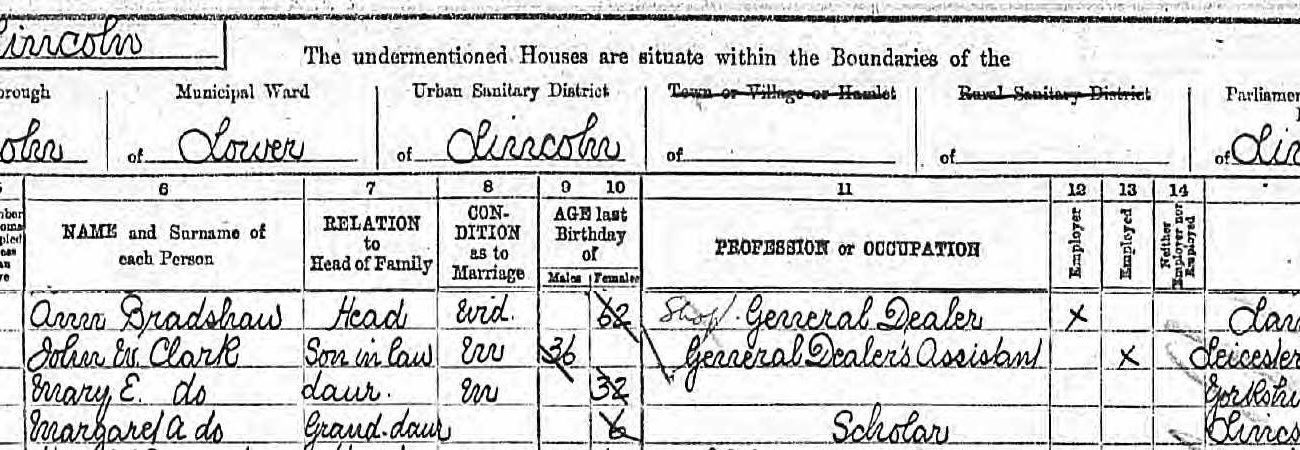 Lincoln
The undermentioned Houses are situate within the Boundaries of the
Municipal Ward Urban Sanitary District Town or Village or Hamlet Rural Sanitary District
of Lower of Lincoln of of of
6 7 8 9 10 11 12 13 14
NAME and Surname of each Person RELATION to Head of Family CON-DITION as to Marriage AGE last Birthday of Males Females PROFESSION or OCCUPATION Employer Employed Neither Employer nor Employed
Ann Bradshaw Head Wid. 62 Shop. General Dealer X
John W. Clark Son in law M 36 General Dealer's Assistant X Leicester
Mary E. do daur. M 32
Margaret A do Grand-daur 6 Scholar